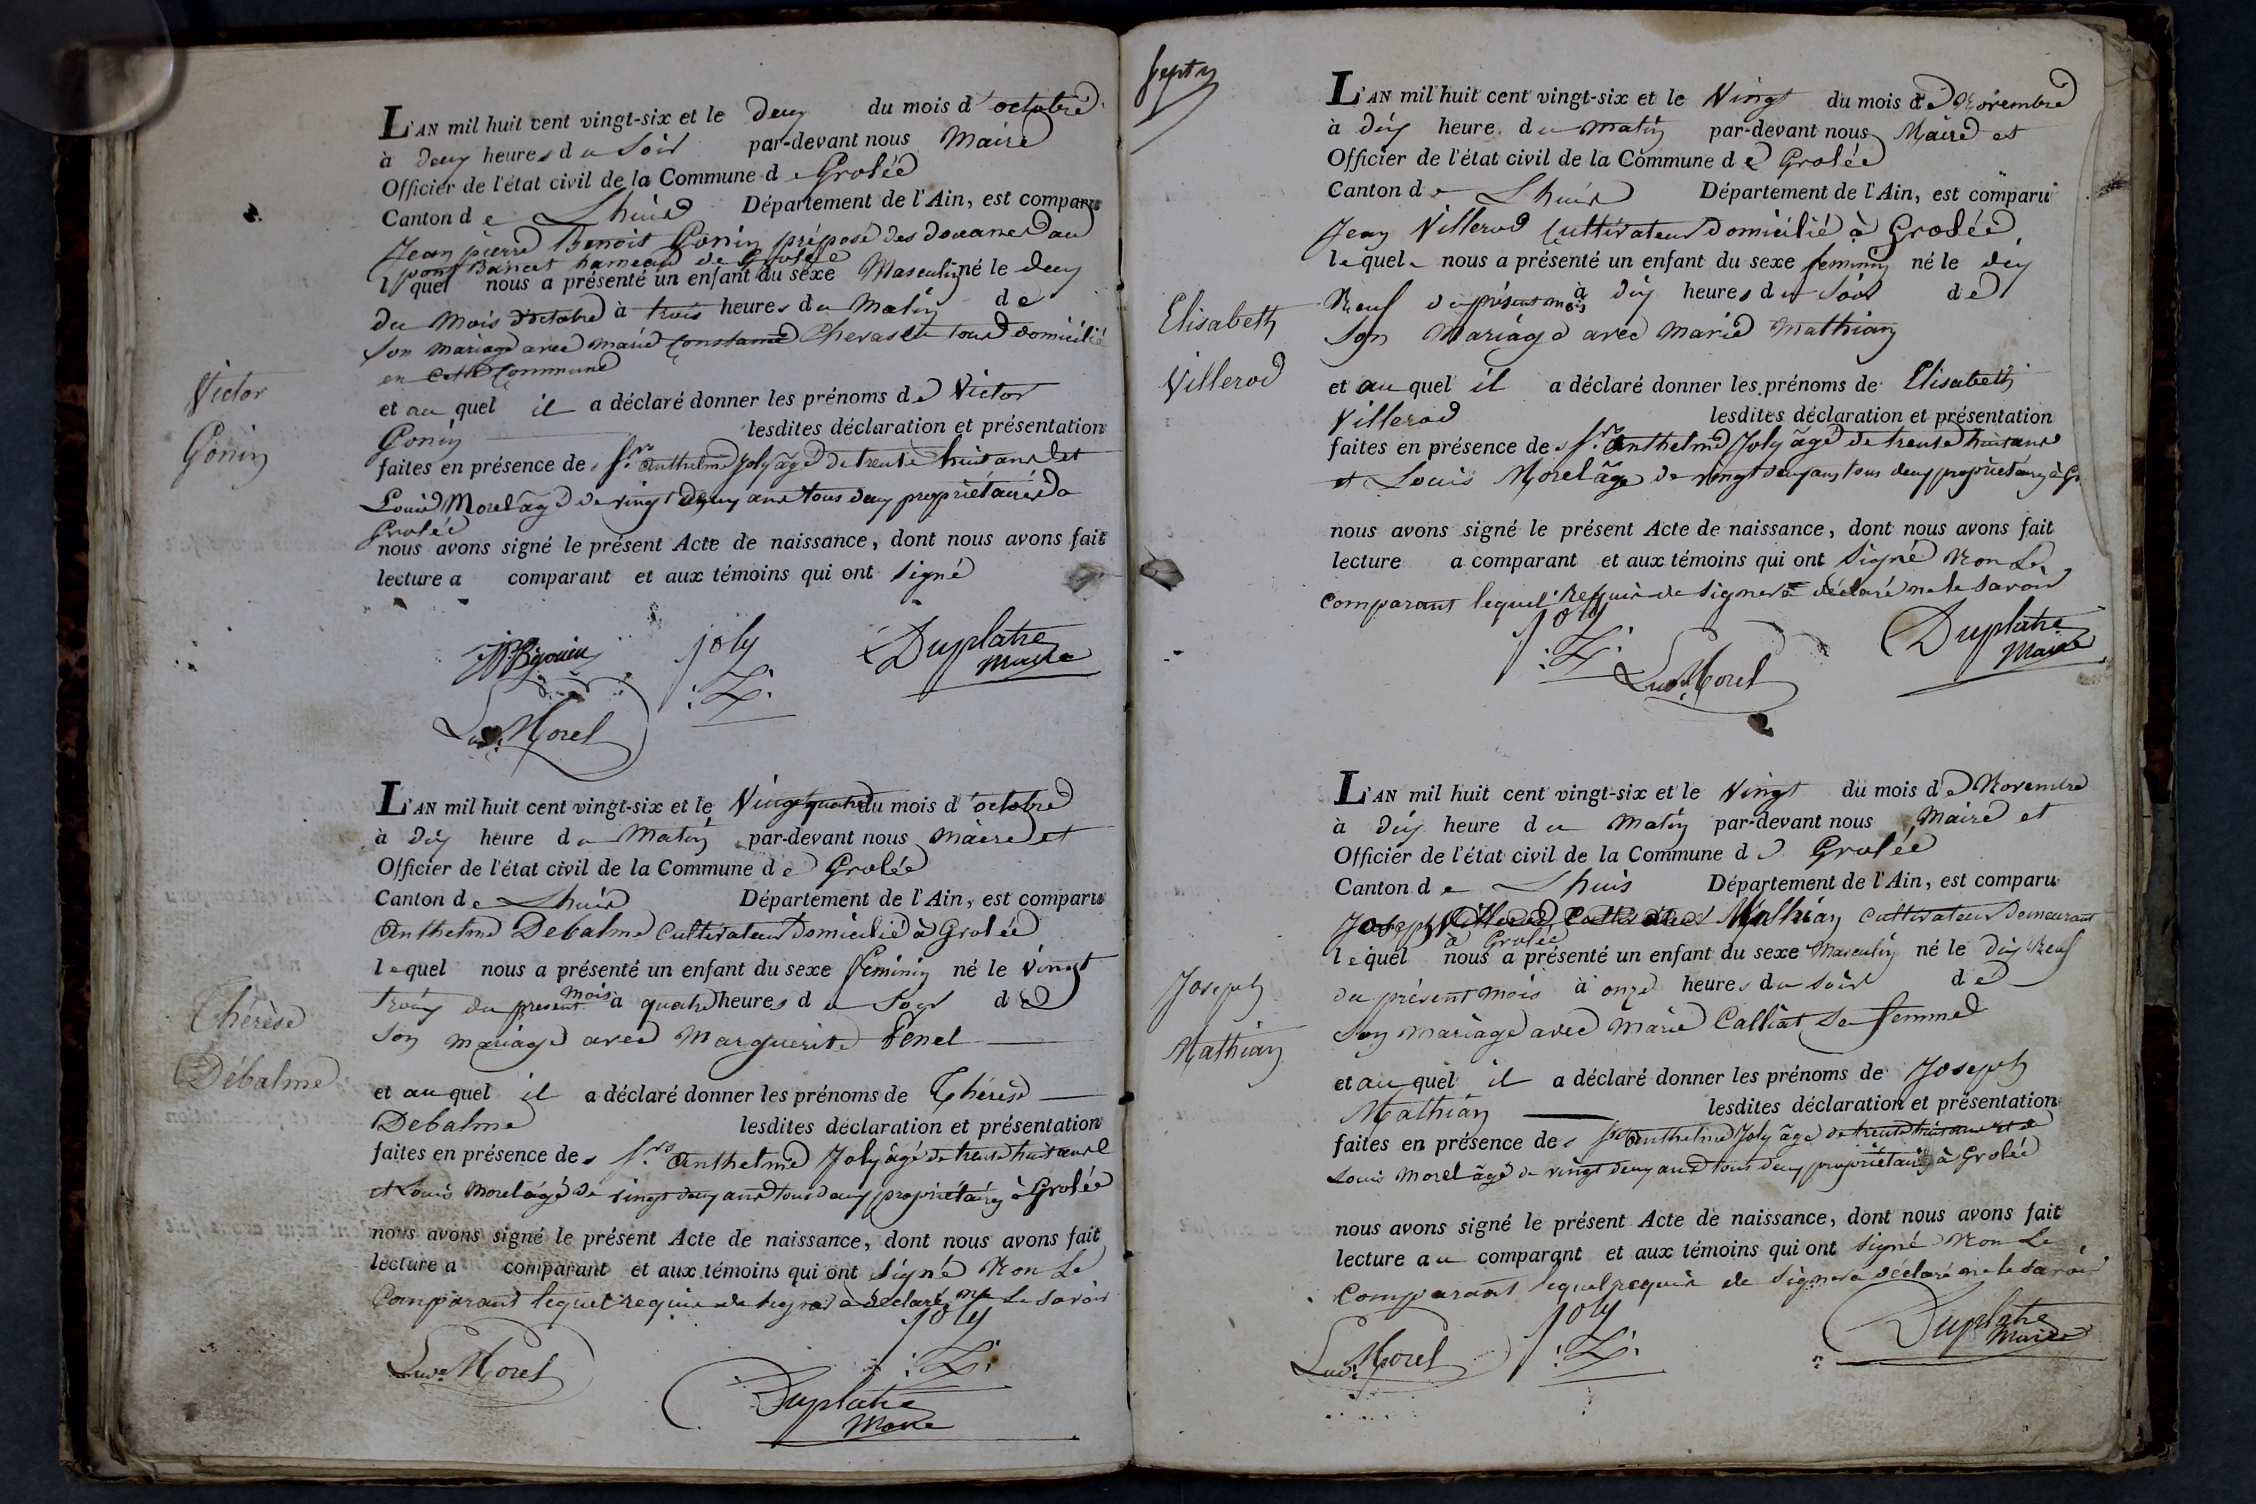 Victor
Gonin
L'AN mil huit cent vingt-six et le deux du mois d'octobre
à deux heures du soir par-devant nous Maire
Officier de l'état civil de la Commune de Grolée
Canton de Lhuis Département de l'Ain, est comparu
Jean pierre Benoit Gonin préposé des douanes au
pont Bancet hameau de Grolée
lequel nous a présenté un enfant du sexe Masculin né le deux
du mois d'octobre à trois heures du Matin de
son mariage avec marie Constance tous domicilié
en cette Commune
et au quel il a déclaré donner les prénoms de Victor
Gonin lesdites déclaration et présentation
faites en présence des Srs Anthelme Joly âgé de trente huit ans et
Louis Morel âgé de vingt deux ans tous deux propriétaires a
Grolée
nous avons signé le présent Acte de naissance, dont nous avons fait
lecture a comparant et aux témoins qui ont signé
JPBgonin joly Duplatre
Maire
Lud. Morel
Thérèse
Débalme
L'AN mil huit cent vingt-six et le Vingt quatre du mois d'octobre
à dix heure du Matin par-devant nous maire et
Officier de l'état civil de la Commune de Grolée
Canton de Lhuis Département de l'Ain, est comparu
Anthelme Debalme Cultivateur domicilié à Grolée
lequel nous a présenté un enfant du sexe feminin né le vingt
trois du present mois à quatre heures du soir de
son mariage avec Marguerite Penel
et au quel il a déclaré donner les prénoms de Thérèse
Debalme lesdites déclaration et présentation
faites en présence des Srs Anthelme Joly âgé de trente huit ans
et Louis Morel âgé de vingt deux ans tous deux propriétaires à Grolée
nous avons signé le présent Acte de naissance, dont nous avons fait
lecture a comparant et aux témoins qui ont signé Non le
Comparant lequel requis de signer a déclaré ne le savoir
joly
Lud. Morel
Duplatre
Maire
Elisabeth
Villerod
L'AN mil huit cent vingt-six et le Vingt du mois de Novembre
à dix heure du matin par-devant nous Maire et
Officier de l'état civil de la Commune de Grolée
Canton de Lhuis Département de l'Ain, est comparu
Jean Villerod Cultivateur domicilié à Grolée
lequel nous a présenté un enfant du sexe feminin né le dix
Neuf du présent mois à dix heures du soir de
son Mariage avec Marie Mathian
et au quel il a déclaré donner les prénoms de Elisabeth
Villerod lesdites déclaration et présentation
faites en présence des Srs Anthelme Joly âgé de trente huit ans
et Louis Morel âgé de vingt deux ans tous deux propriétaires à Gr
nous avons signé le présent Acte de naissance, dont nous avons fait
lecture a comparant et aux témoins qui ont signé Non le
comparant lequel requis de signer a déclaré ne le savoir
joly
Lud. Morel
Duplatre
Maire
Joseph
Mathian
L'AN mil huit cent vingt-six et le Vingt du mois de Novembre
à dix heure du Matin par-devant nous Maire et
Officier de l'état civil de la Commune de Grolée
Canton de Lhuis Département de l'Ain, est comparu
Joseph Villerod Cultivateur Mathian Cultivateur demeurant
à Grolée
lequel nous a présenté un enfant du sexe Masculin né le dix Neuf
du présent mois à onze heures du soir de
son mariage avec Marie Calliat sa femme
et au quel il a déclaré donner les prénoms de Joseph
Mathian lesdites déclaration et présentation
faites en présence des Srs Anthelme Joly âgé de trente huit ans et de
Louis Morel âgé de vingt deux ans tous deux propriétaires à Grolée
nous avons signé le présent Acte de naissance, dont nous avons fait
lecture au comparant et aux témoins qui ont signé Non le
Comparant lequel requis de signer a déclaré ne le savoir
joly
Lud. Morel
Duplatre
Maire